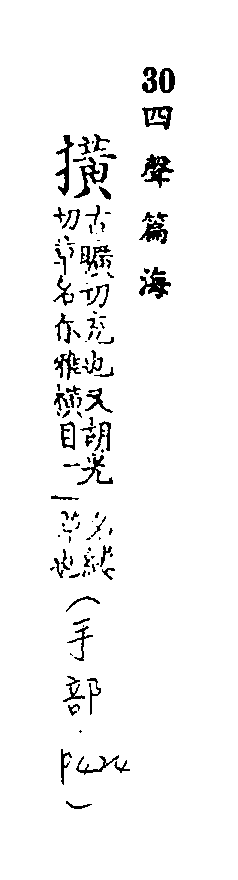 30四聲篇海
撗
古曠切充也又胡光
切草名尔雅橫目一
名
草也
(手部．p424)